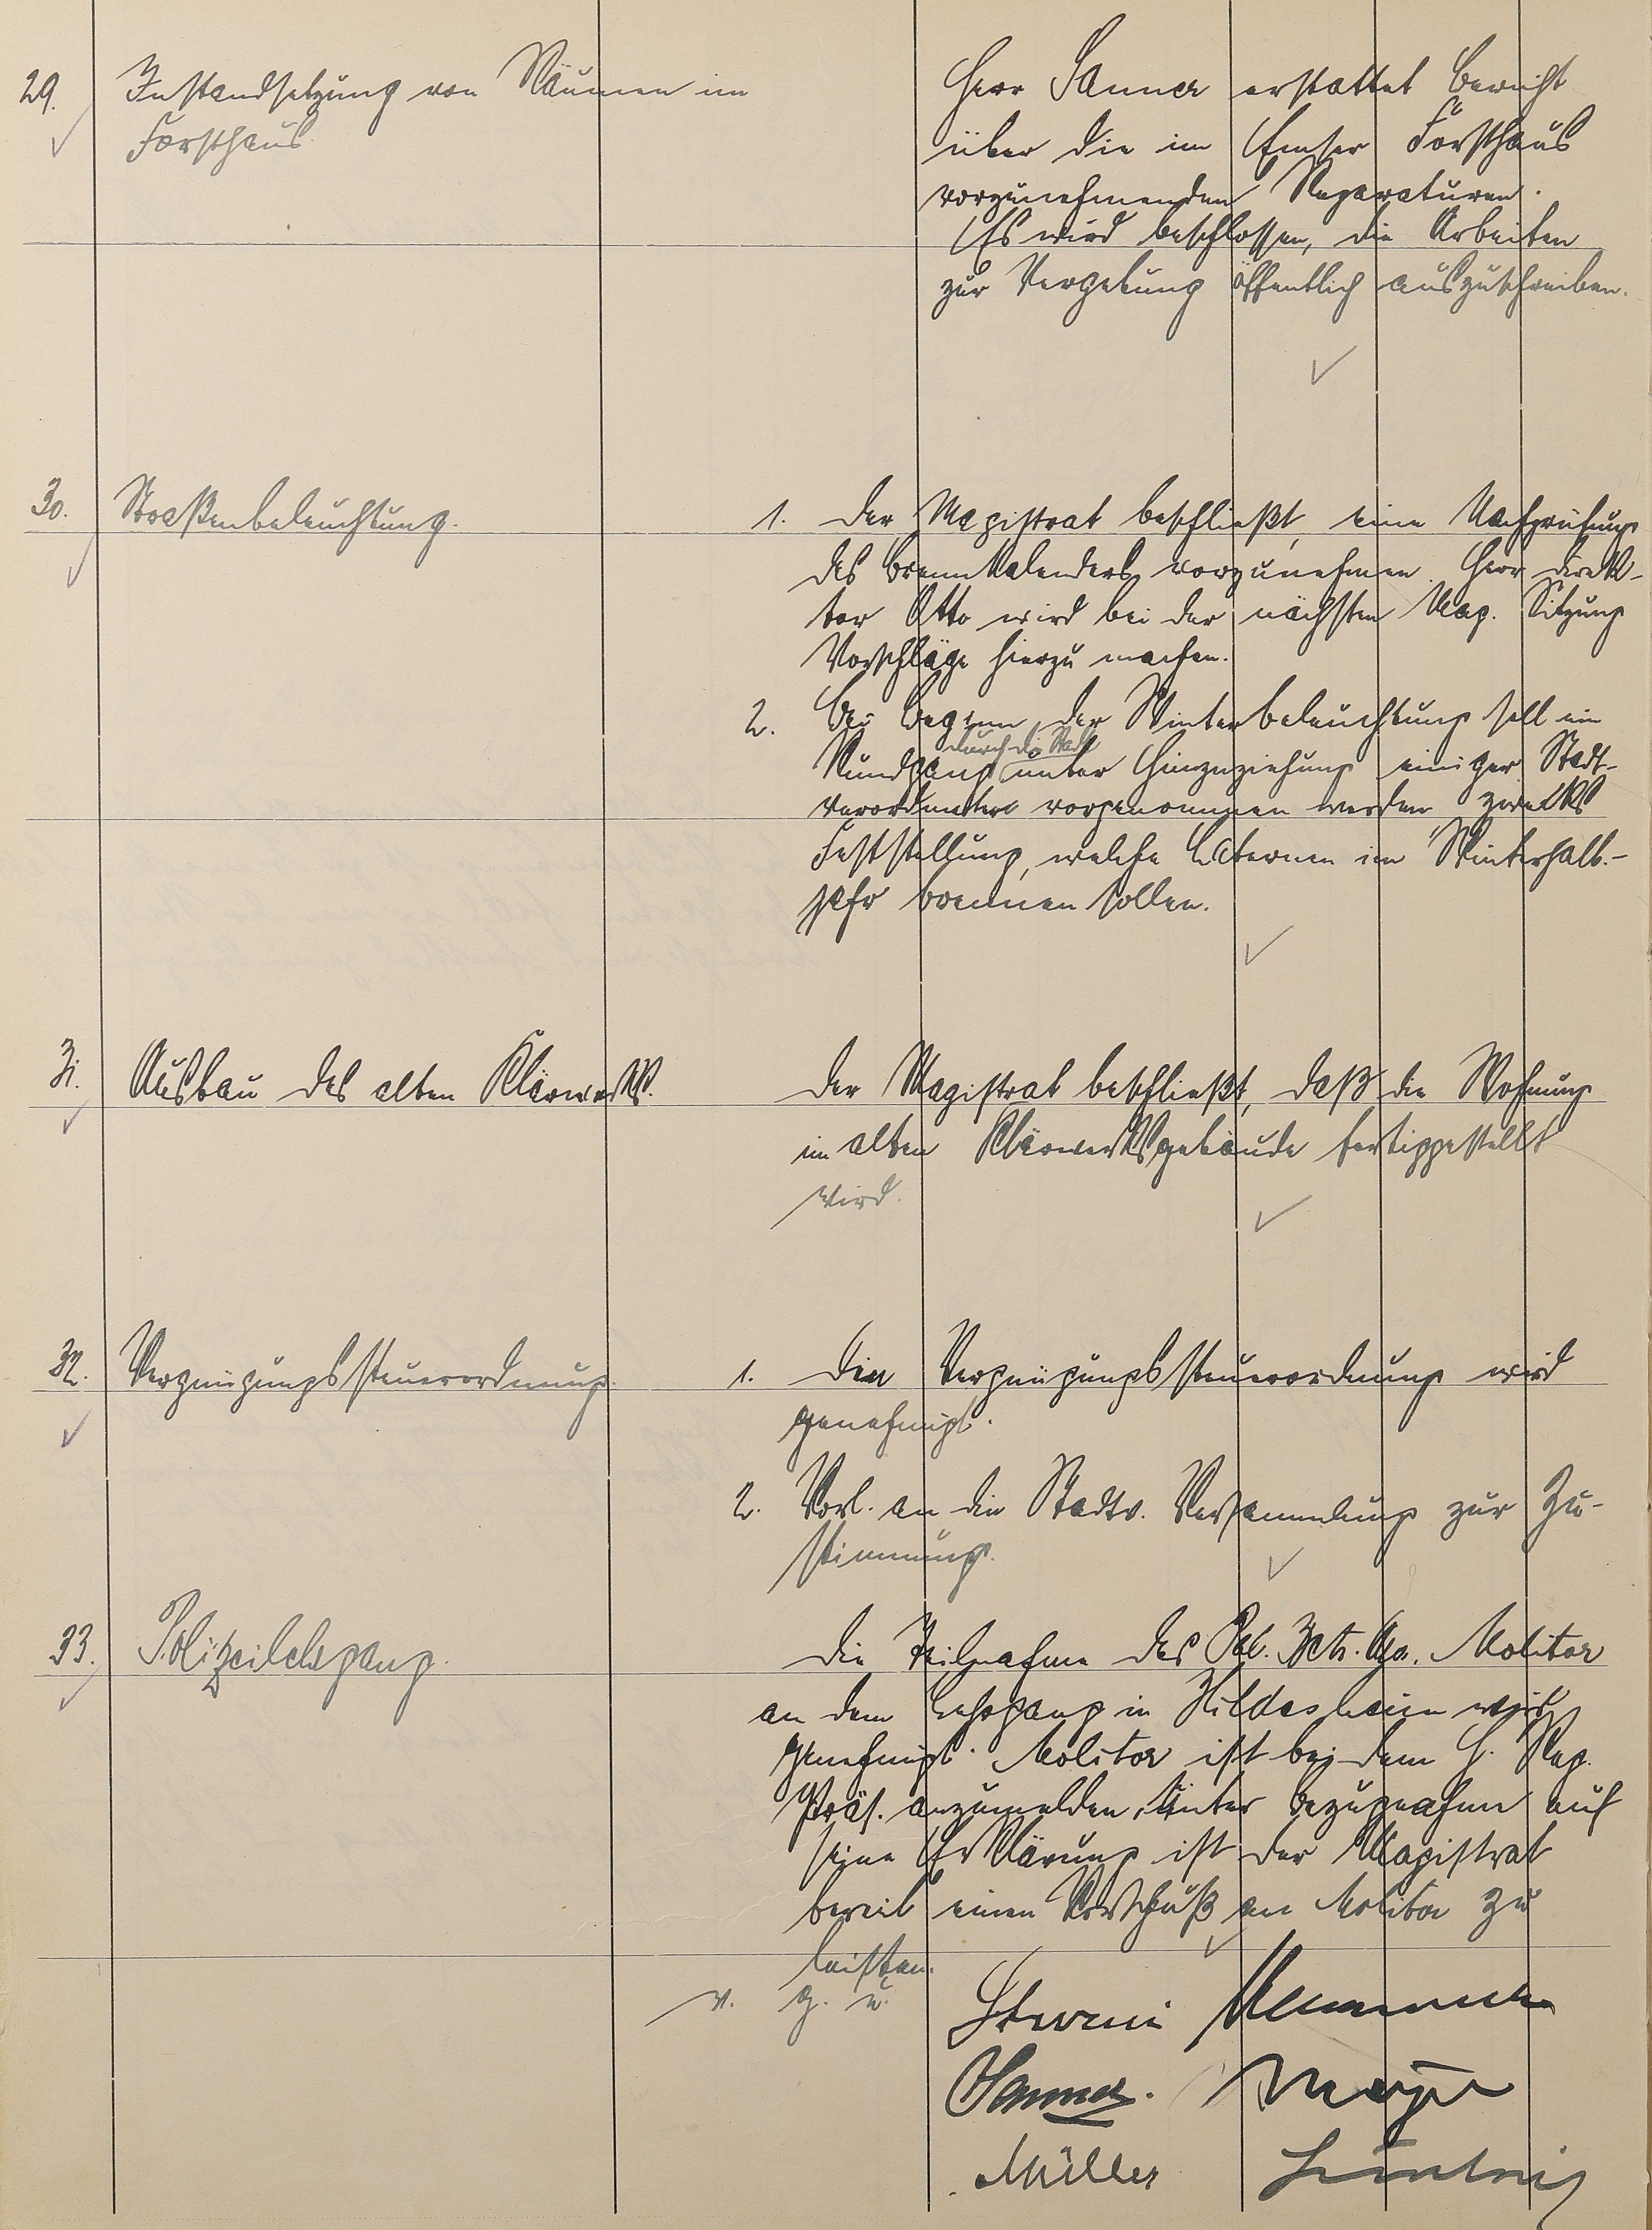 29.
Instandsetzung von Räumen im
Forsthaus
Herr Sanner erstattet Bericht
über die im Emser Forsthaus
vorzunehmenden Reparaturen.
Es wird beschlossen, die Arbeiten
zur Vergebung öffentlich auszuschreiben.
30.
Straßenbeleuchtung.
1. Der Magistrat beschließt, eine Nachprüfung
des Brennkalenders vorzunehmen. Herr Direk-
tor Otto wird bei der nächsten Mag. Sitzung
Vorschläge hierzu machen.
2. Bei Beginn der Winterbeleuchtung soll ein
durch die Stadt
Rundgang unter Hinzuziehung einiger Stadt-
verordneter vorgenommen werden zwecks
Feststellung, welche Laternen im Winterhalb-
jahr brennen sollen.
31.
Ausbau des alten Klärwerks.
Der Magistrat beschließt, daß die Wohnung
im alten Klärwerksgebäude fertiggestellt
wird.
32.
Vergnügungssteuerordnung.
1. Die Vergnügungssteuerordnung wird
genehmigt.
2. Vorl. an die Stadtv. Versammlung zur Zu-
stimmung.
33.
Polizeilehrgang.
Die Teilnahme des Pol. Molitor
an dem Lehrgang in Hildesheim wird
genehmigt. Molitor ist bei dem H. Reg.
Präs. anzumelden, Unter Bezugnahme auf
seine Erklärung ist der Magistrat
bereit einen Vorschuß an Molitor zu
leisten.
v. g. u.
Sanner.
Meyer
Müller